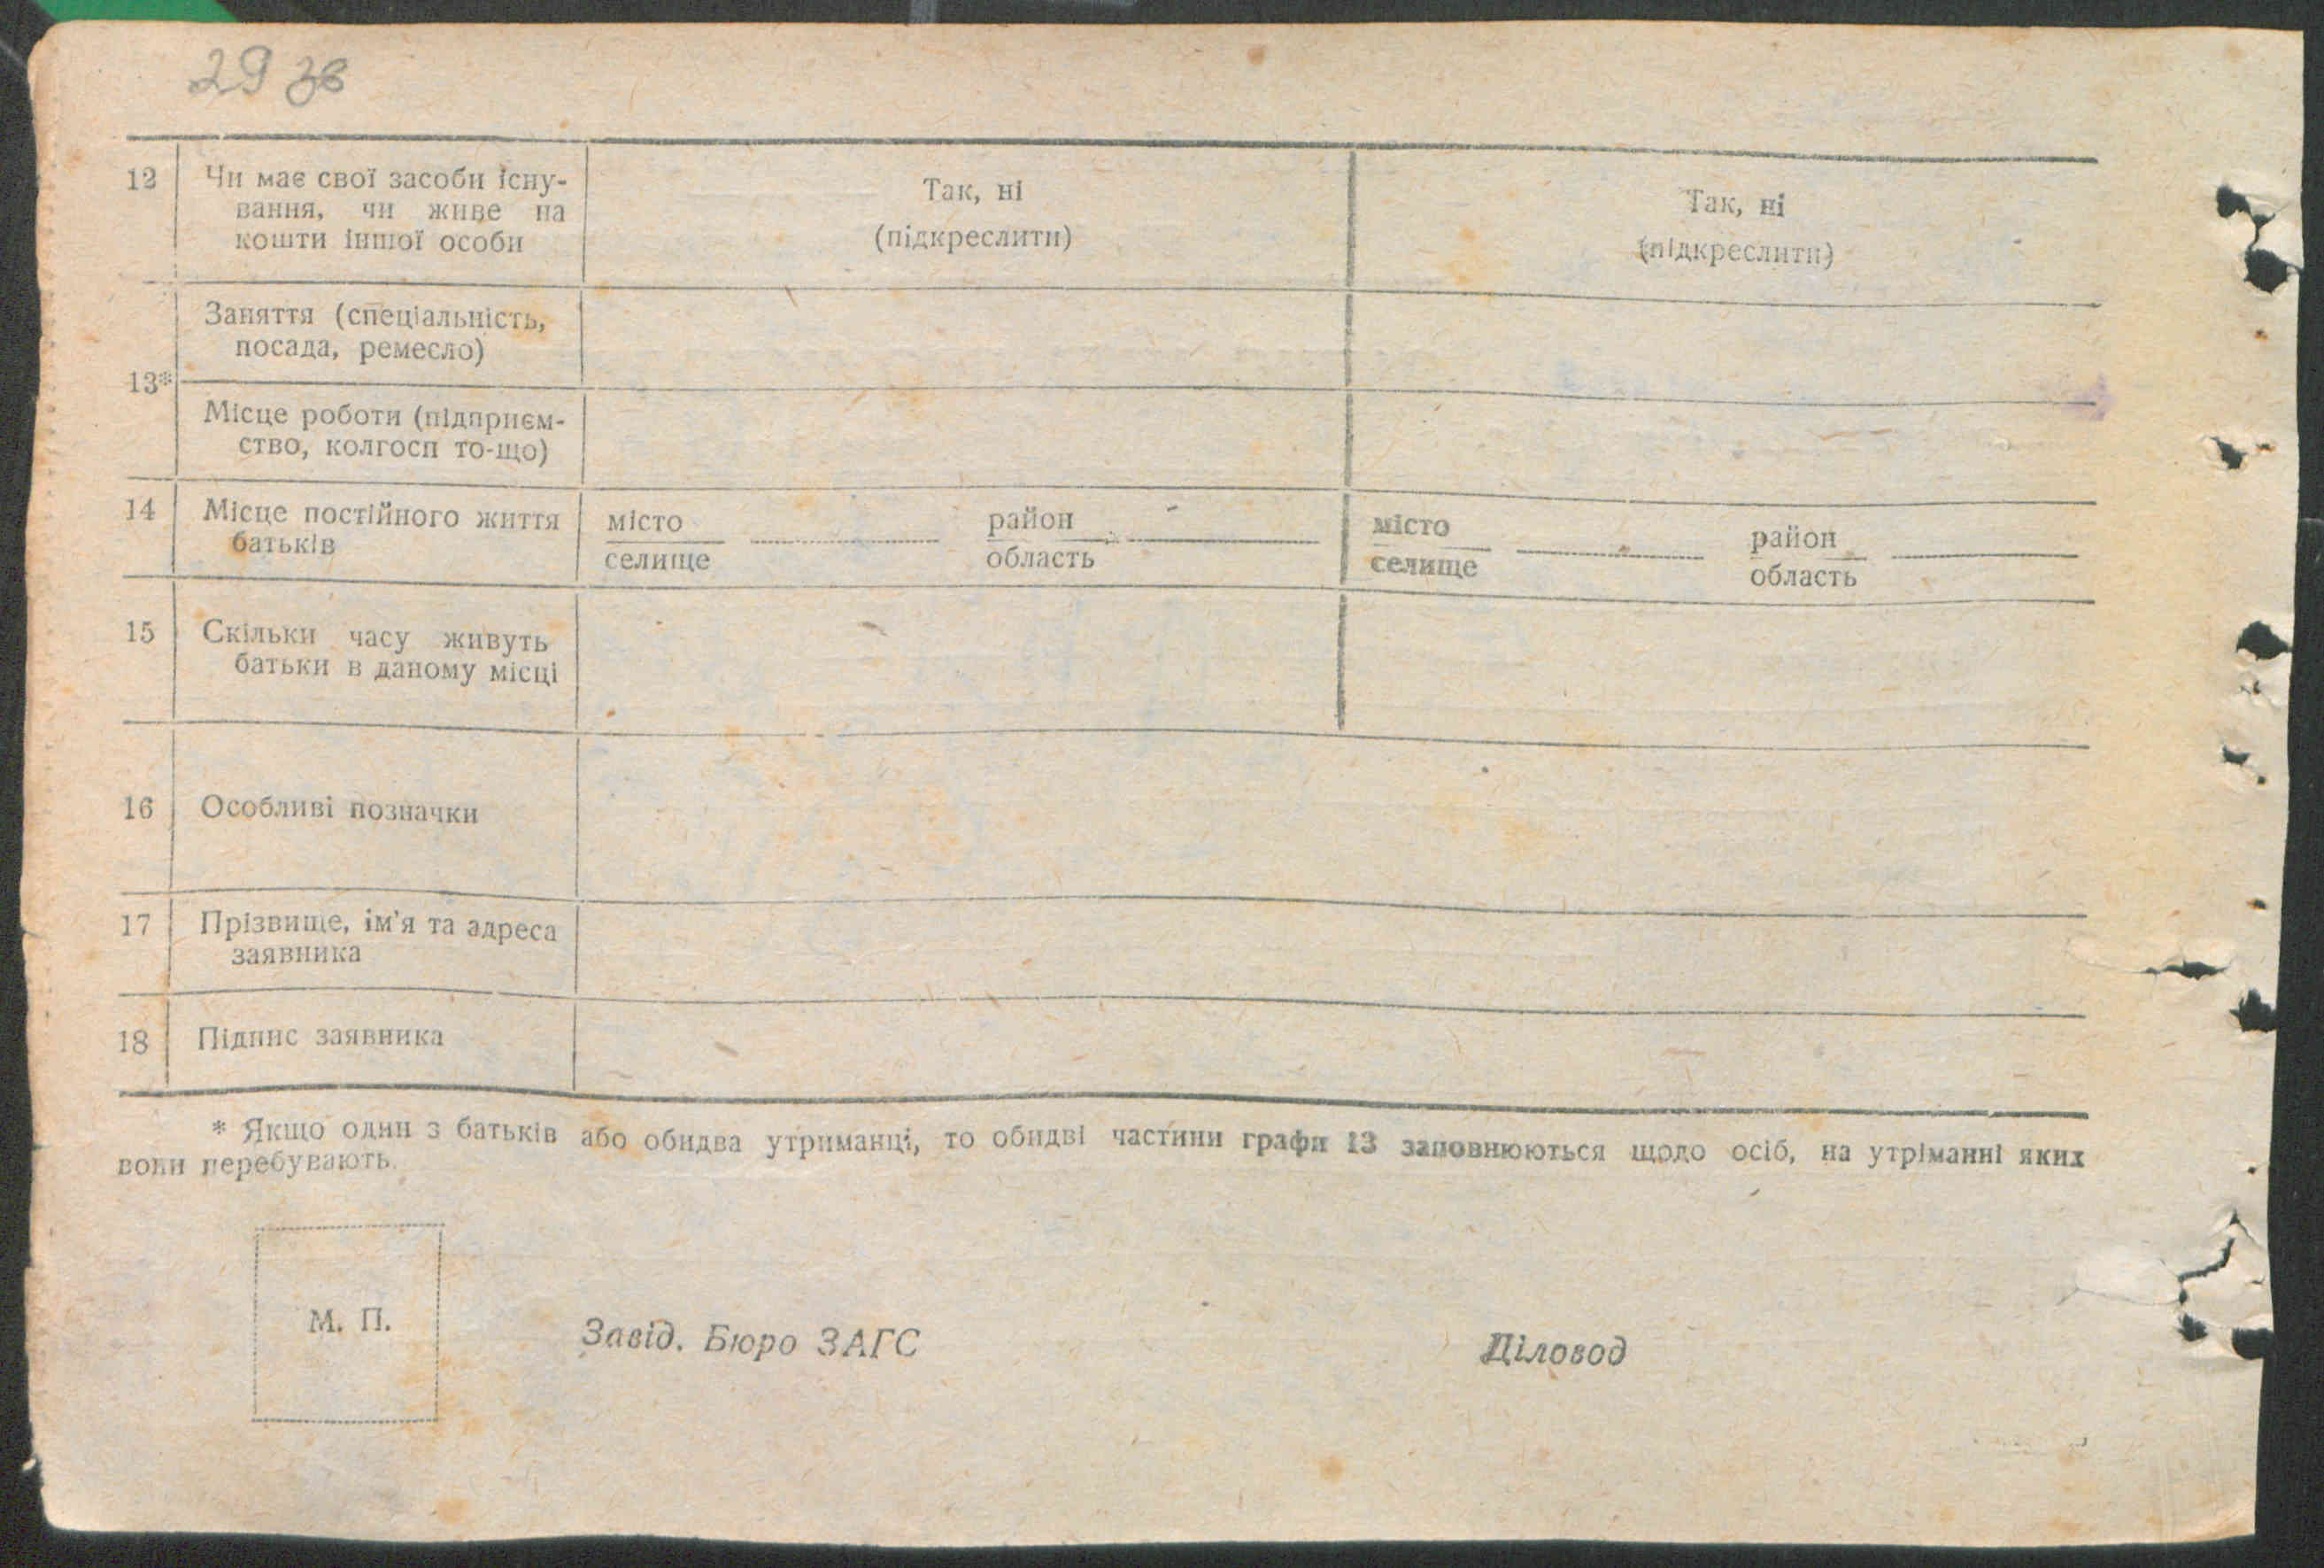 29 зв
12 Чи має свої засоби існу- Так, ні Так, ні
вання, чи живе на (підкреслити) (підкреслити)
кошти іншої особи
Заняття (спеціальність,
посада, ремесло)
13*
Місце роботи (підприєм-
ство, колгосп то-що)
14 Місце постійного життя місто район місто район
батьків селище область селище область
15 Скільки часу живуть
батьки в даному місці
16 Особливі позначки
17 Прізвище, ім'я та адреса
заявника
18 Підпис заявника
* Якщо один з батьків або обидва утриманці, то обидві частини графи 13 заповнюються щодо осіб, на утріманні яких
вони перебувають.
М. П.
Завід. Бюро ЗАГС Діловод